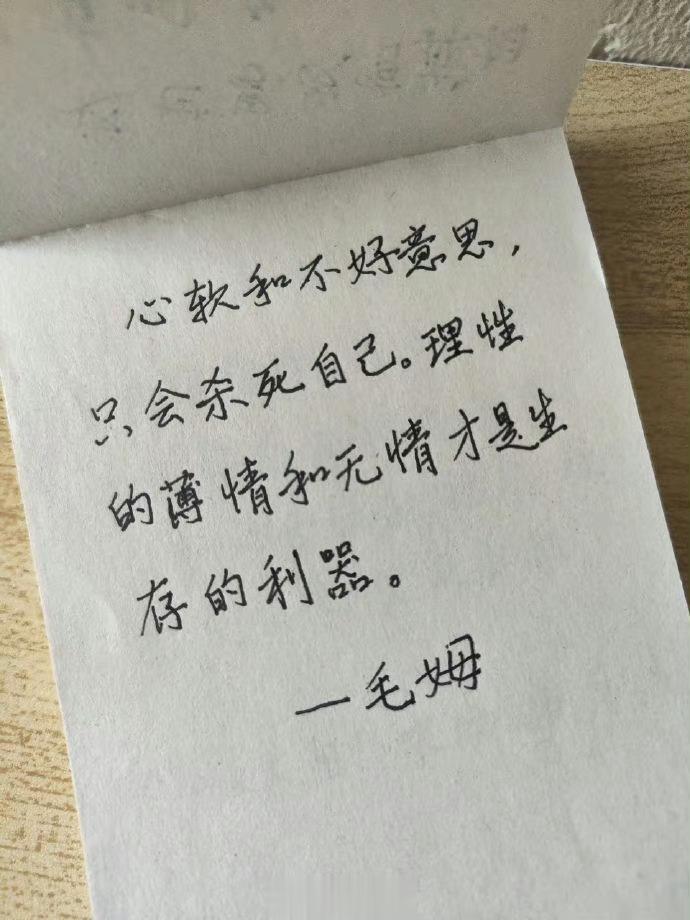 心软和不好意思,
只会杀死自己。理性
的薄情和无情才是生
存的利器。
一毛姆